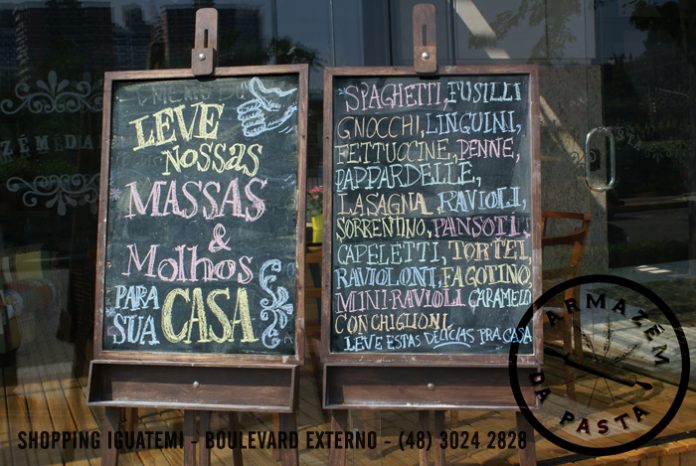 LEVE
NOSSAS
MASSAS
&
Molhos
PARA
SUA
CASA
SPAGHETTI, FUSILLI
GNOCCHI, LINGUINI,
FETTUCCINE, PENNE,
PAPPARDELLE,
LASAGNA, RAVIOLI,
SORRENTINO, PANSOTI,
CAPELETTI, TORTEI,
RAVIOLONI, FAGOTINO,
MINI-RAVIOLI CARAMELLO
CONCHIGLIONI
LEVE ESTAS DELÍCIAS PRA CASA
ARMAZÉM
DA PASTA
SHOPPING IGUATEMI - BOULEVARD EXTERNO - (48) 3024 2828